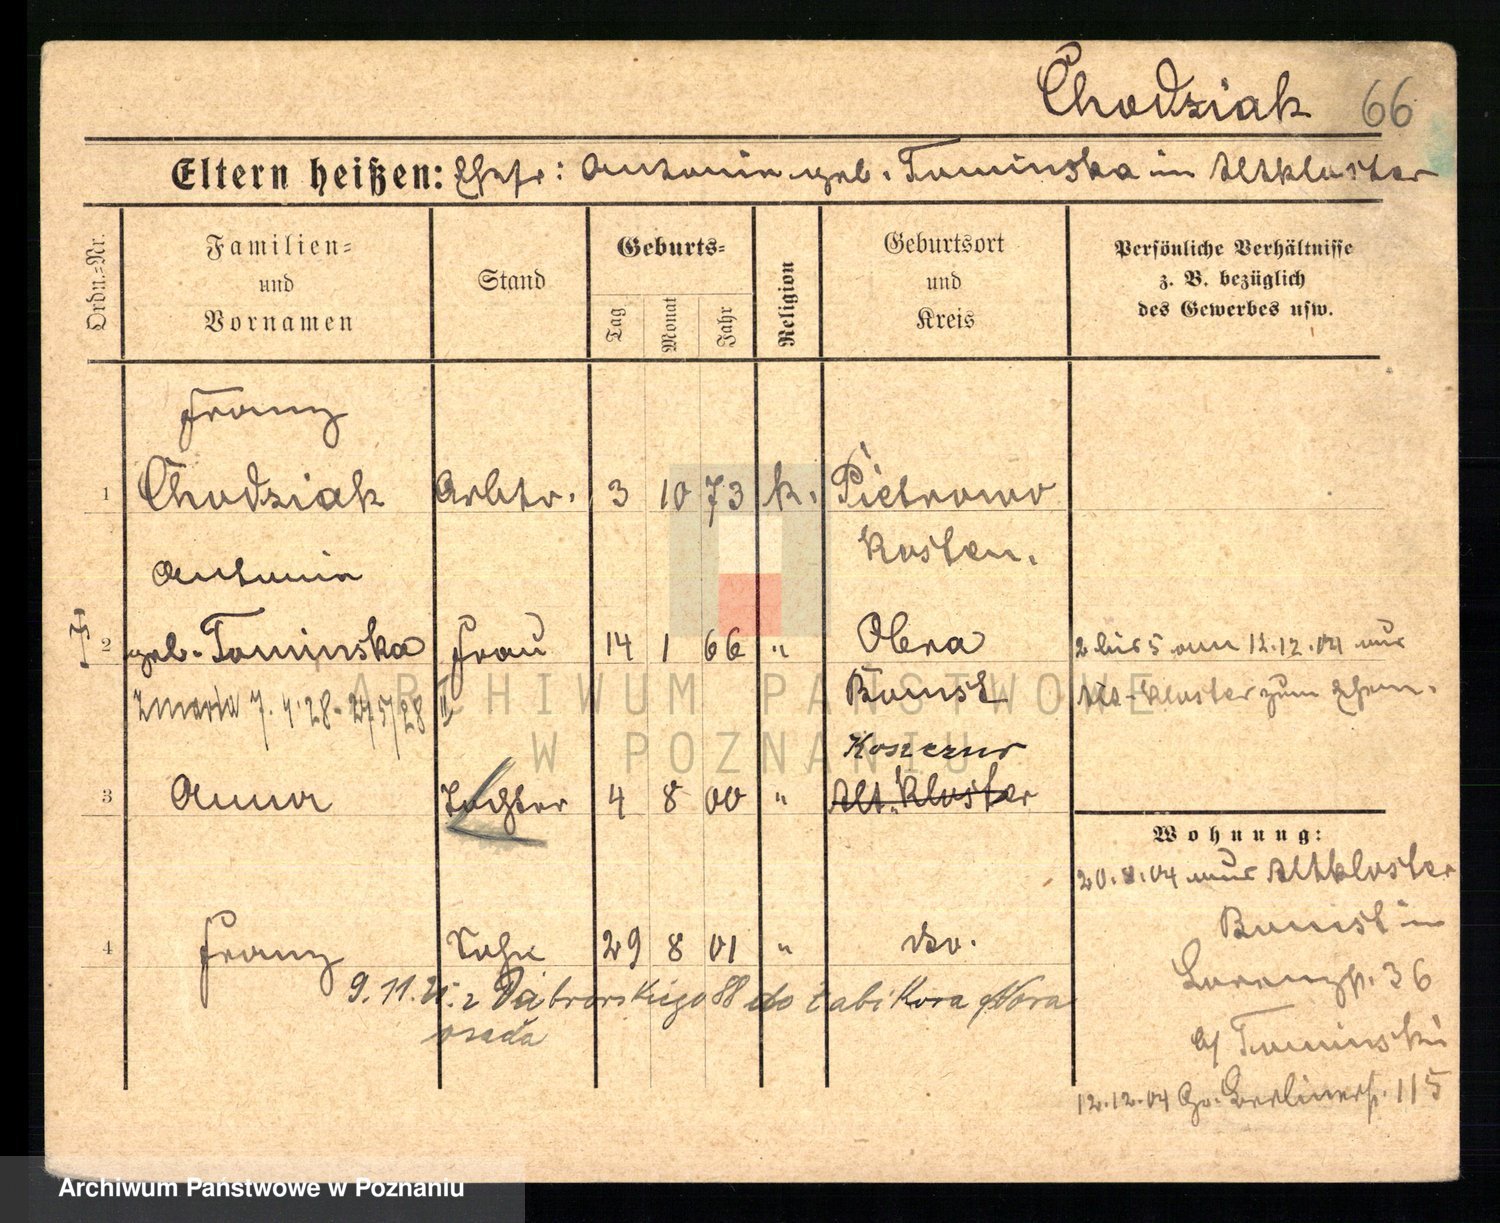 Chodziak 66
Eltern heißen: Ehefr: Antonie geb. Tominska in Altkloster
Ordn.-Nr.
Familien- und Vornamen
Stand
Geburts-
Tag
Monat
Jahr
Religion
Geburtsort und Kreis
Persönliche Verhältnisse z. B. bezüglich des Gewerbes usw.
Franz
1 Chodziak Arbtr. 3 10 73 k. Pietrowo
Kosten.
Antonie
2 geb. Tominska Frau 14 1 66 " Obra 2 bis 5 am 12.12.04 aus
Zmarła 7.4.28 - 245/28 II Bomst Alt-Kloster zum Ehem.
Koszezur
3 Anna Tochter 4 8 00 " Alt. Kloster
Wohnung:
20.8.04 aus Altkloster
Bomst in
4 Franz Sohn 29 8 01 " do.
Lorenzstr. 36
9.11.21. z Dąbrowskiego 88 do Żabikowa Nowa
osada
b/ Tominski
12.12.04 Gr. Berlinerstr. 115
ARCHIWUM PAŃSTWOWE
W POZNANIU
Archiwum Państwowe w Poznaniu